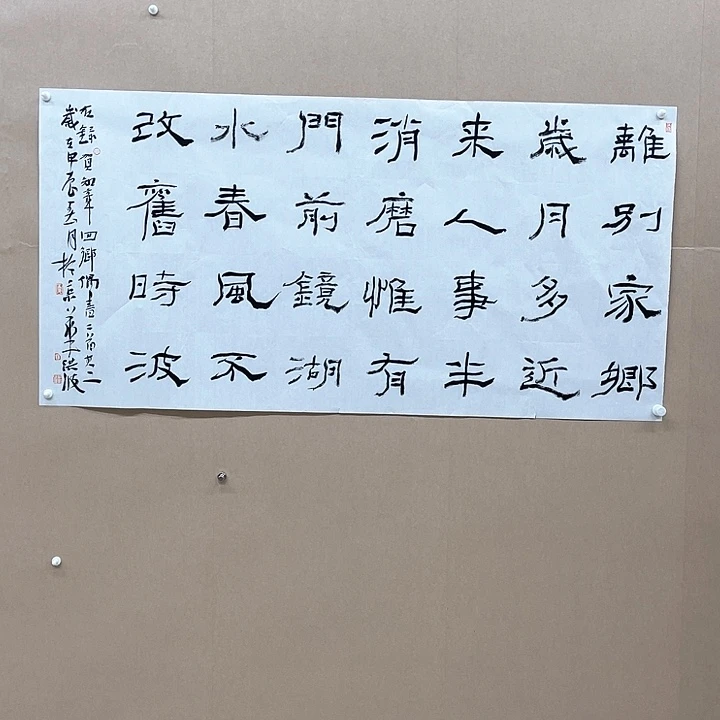 離別家鄉
歲月多近
来人事半
消磨惟有
門前鏡湖
水春風不
改舊時波
右錄賀知章回鄉偶書二首其二
歲在甲辰春月於